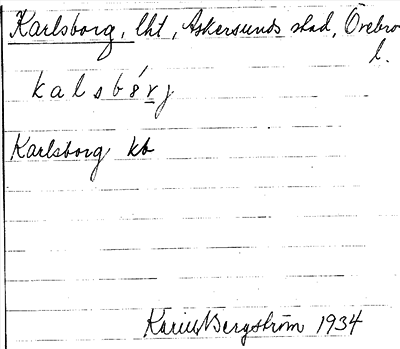 Karlsborg, lht, Askersunds stad, Örebro
l.
kalsbårj
Karlsborg kb
Bergström 1934